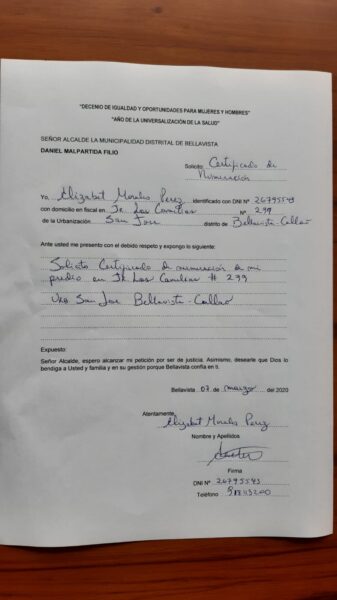 "DECENIO DE IGUALDAD Y OPORTUNIDADES PARA MUJERES Y HOMBRES"
"AÑO DE LA UNIVERSALIZACIÓN DE LA SALUD"
SEÑOR ALCALDE LA MUNICIPALIDAD DISTRITAL DE BELLAVISTA
DANIEL MALPARTIDA FILIO
Solicito: Certificado de
Numeración
Yo, Elizabet Morales Perez, identificado con DNI Nº 26795543
con domicilio en fiscal en Jr. Las Camelias Nº 299
de la Urbanización San Jose distrito de Bellavista-Callao
Ante usted me presento con el debido respeto y expongo lo siguiente:
Solicito Certificado de numeración de mi
predio en Jr. Las Camelias # 299
San Jose Bellavista-Callao
Expuesto:
Señor Alcalde, espero alcanzar mi petición por ser de justicia. Asimismo, desearle que Dios lo
bendiga a Usted y familia y en su gestión porque Bellavista confía en ti.
Bellavista 07 de marzo del 2020
Atentamente,
Elizabet Morales Perez
Nombre y Apellidos
Firma
DNI Nº 26795543
Teléfono